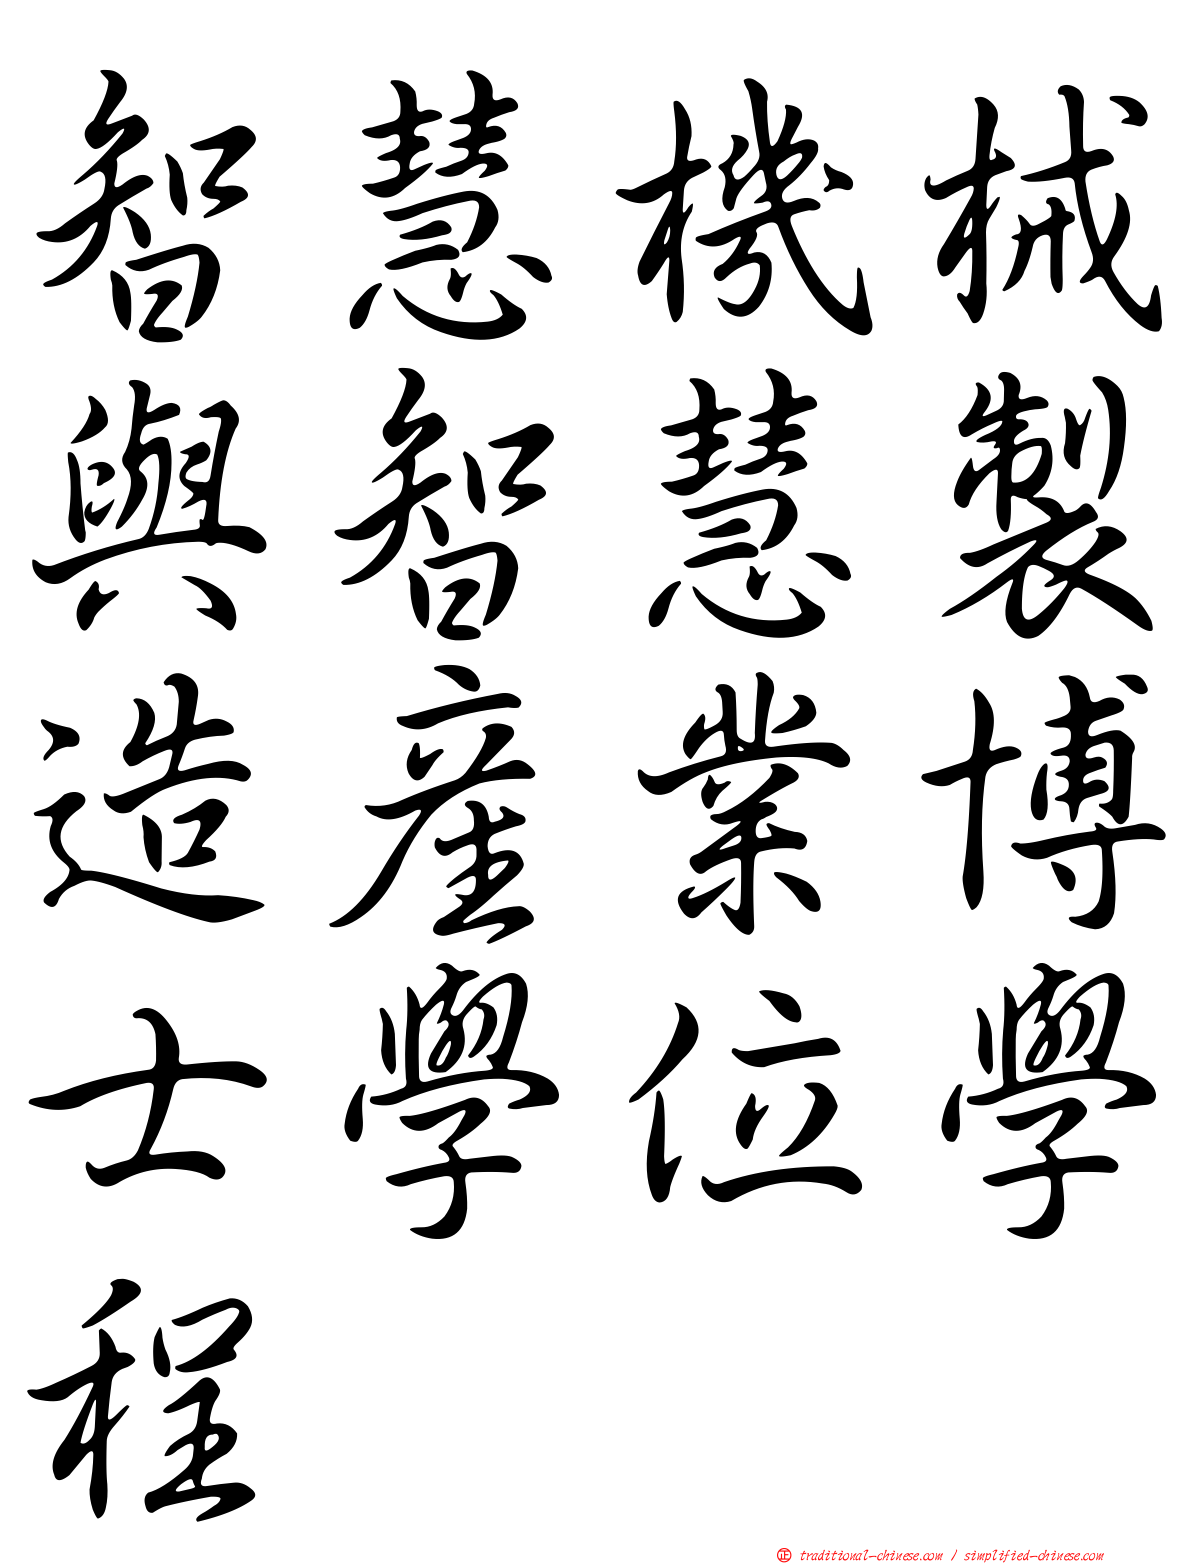 智慧機械
與智慧製
造產業博
士學位學
程
正 traditional-chinese.com / simplified-chinese.com